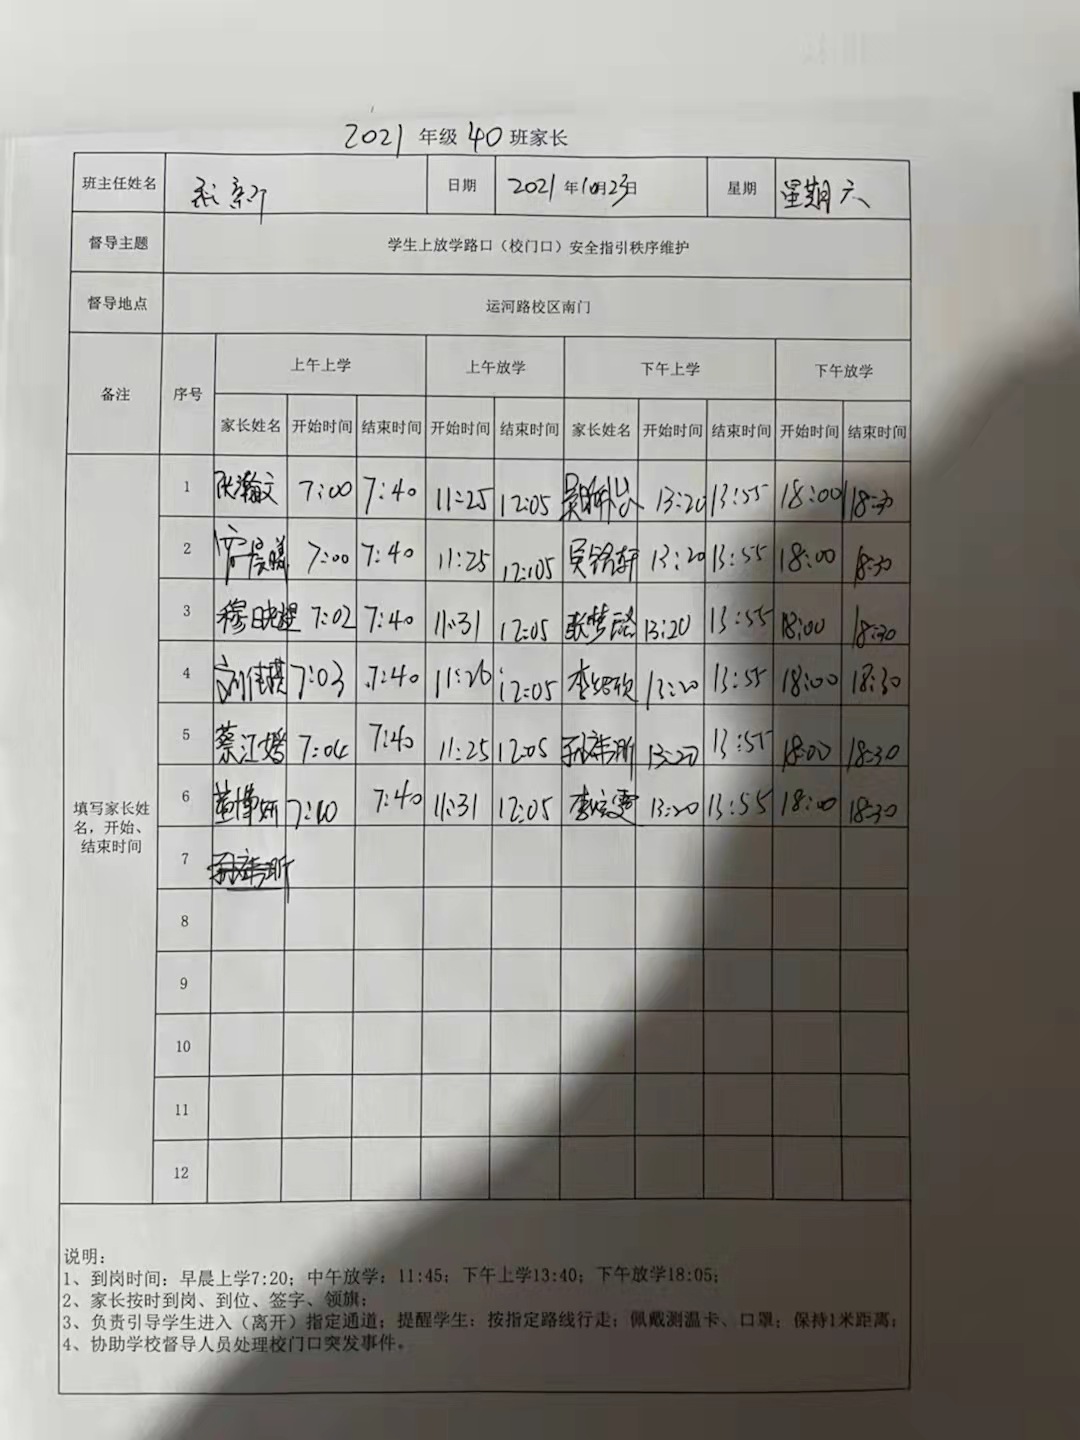 2021 年级 40 班家长
班主任姓名 日期 2021 年10月23日 星期 星期六
督导主题 学生上放学路口（校门口）安全指引秩序维护
督导地点 运河路校区南门
备注 序号 上午上学 上午放学 下午上学 下午放学
家长姓名 开始时间 结束时间 开始时间 结束时间 家长姓名 开始时间 结束时间 开始时间 结束时间
1 张瀚文 7:00 7:40 11:25 12:05 13:20 13:55 18:00 18:30
2 7:00 7:40 11:25 12:05 吴铭轩 13:20 13:55 18:00 18:30
3 穆 7:02 7:40 11:31 12:05 张梦 13:20 13:55 18:00 18:30
4 刘佳琪 7:03 7:40 11:26 12:05 李 13:20 13:55 18:00 18:30
5 蔡江嫣 7:04 7:40 11:25 12:05 13:20 13:55 18:00 18:30
6 董博妍 7:10 7:40 11:31 12:05 李 13:20 13:55 18:00 18:30
7
8
9
10
11
12
填写家长姓
名，开始、
结束时间
说明：
1、到岗时间：早晨上学7:20；中午放学：11:45；下午上学13:40；下午放学18:05；
2、家长按时到岗、到位、签字、领旗；
3、负责引导学生进入（离开）指定通道；提醒学生：按指定路线行走；佩戴测温卡、口罩；保持1米距离；
4、协助学校督导人员处理校门口突发事件。